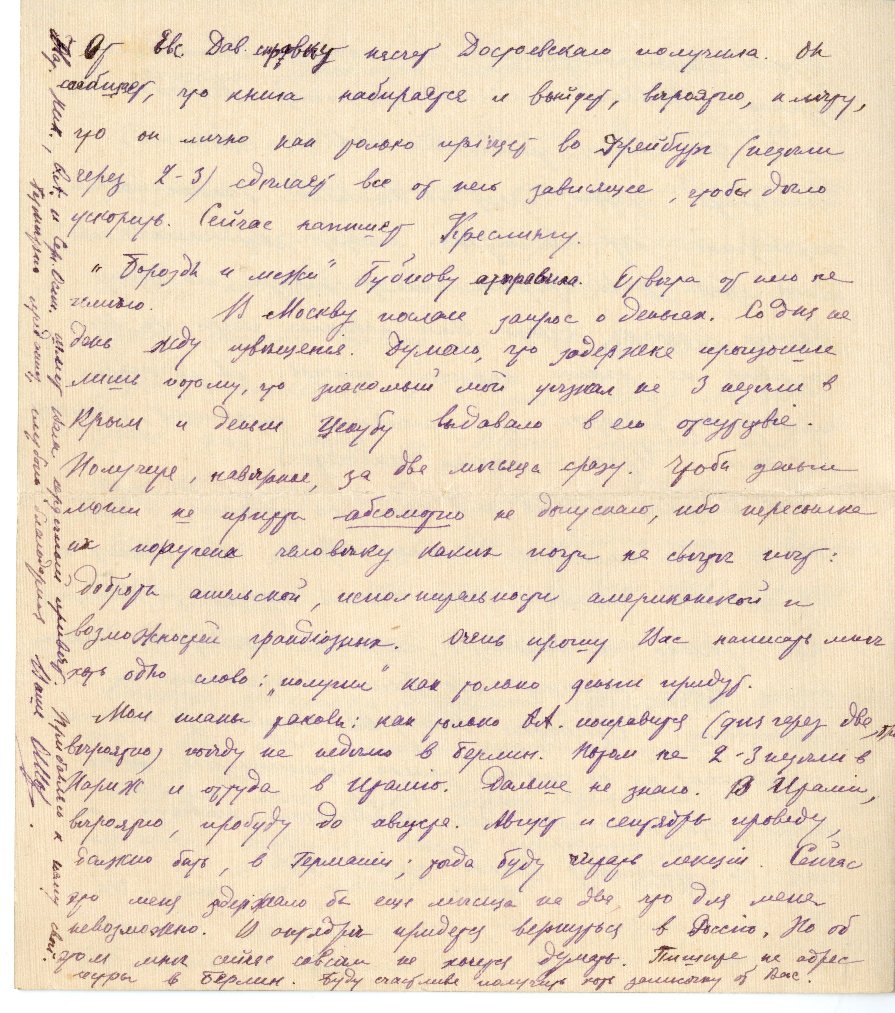 От Евс. Дав. справку насчет Достоевскаго получила. Он
сообщает, что книга набирается и выйдет, вѣроятно, к лѣту,
что он лично как только приѣдет во Фрейбург (недѣли
через 2-3) сдѣлает все от него зависящее, чтобы дѣло
ускорить. Сейчас напишет Креслингу.
"Борозды и межи" Бубнову отправила. Отвѣта от него не
имѣю. В Москву послала запрос о деньгах. Со дня на
день жду извѣщенія. Думаю, что задержка произошла
лишь потому, что знакомый мой уѣзжал на 3 недѣли в
Крым и деньги Цекубу выдавало в его отсутствіе.
Получите, навѣрное, за два мѣсяца сразу. Чтобы деньги
могли не придти абсолютно не допускаю, ибо пересылка
их поручена человѣку каких почти на свѣтѣ нѣт:
доброты ангельской, исполнительности американской и
возможностей грандіозных. Очень прошу Вас написать мнѣ
хоть одно слово: "получил" как только деньги придут.
Мои планы таковы: как только В.А. поправится (дня через два-три
вѣроятно) поѣду на недѣлю в Берлин. Потом на 2-3 недѣли в
Париж и оттуда в Италію. Дальше не знаю. В Италіи,
вѣроятно, пробуду до августа. Август и сентябрь проведу,
должно быть, в Германіи; тогда буду читать лекціи. Сейчас
это меня задержало бы еще мѣсяца на два что для меня
невозможно. В октябрѣ придется вернуться в Россію. Но об
этом мнѣ сейчас совсѣм не хочется думать. Пишите на адрес
в Берлин. Буду счастлива получить хоть записочку от Вас.
В.А. и Серг. Осип. шлют Вам сердечный привѣт. Прибавляю к нему свой.
глубоко благодарная Ваша